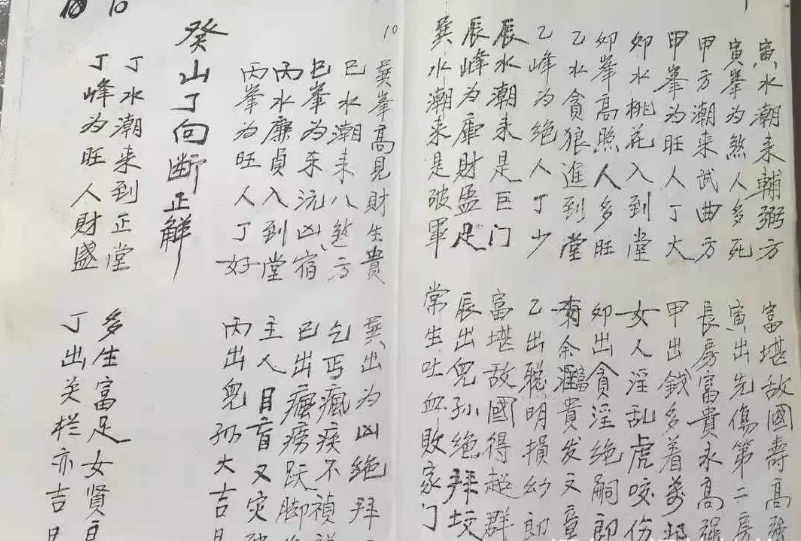 寅水潮来輔弼方 富堪敌國壽高強
寅峯为煞人多死 寅出先傷第二房
甲方潮来武曲方 長房富貴永高強
甲峯为旺人丁大 甲出錢多着
卯水桃花入到堂 女人淫乱虎咬伤
卯峯高照人多旺 卯出貪淫绝嗣郎
乙水貪狼進到堂 余潤貴发文章
乙峰为绝人丁少 乙出聪明損幼郎
辰水潮来是巨门 富堪敌國得超群
辰峰为庫財盈足 辰出兒孙绝拜坟
巽水潮来是破軍 常生吐血敗家门
10
巽峯高見財生貴 巽出为凶絶拜
巳水潮来八煞方 乞丐瘋疾不禎祥
巳峯为来沅凶宿 巳出癰痨跃脚
丙水廉貞入到堂 主人目盲又灾
丙峯为旺人丁好 丙出兒孙大吉
癸山丁向断正解
丁水潮来到正堂 多生富足女贤
丁峰为旺人財盛 丁出关栏亦吉
10